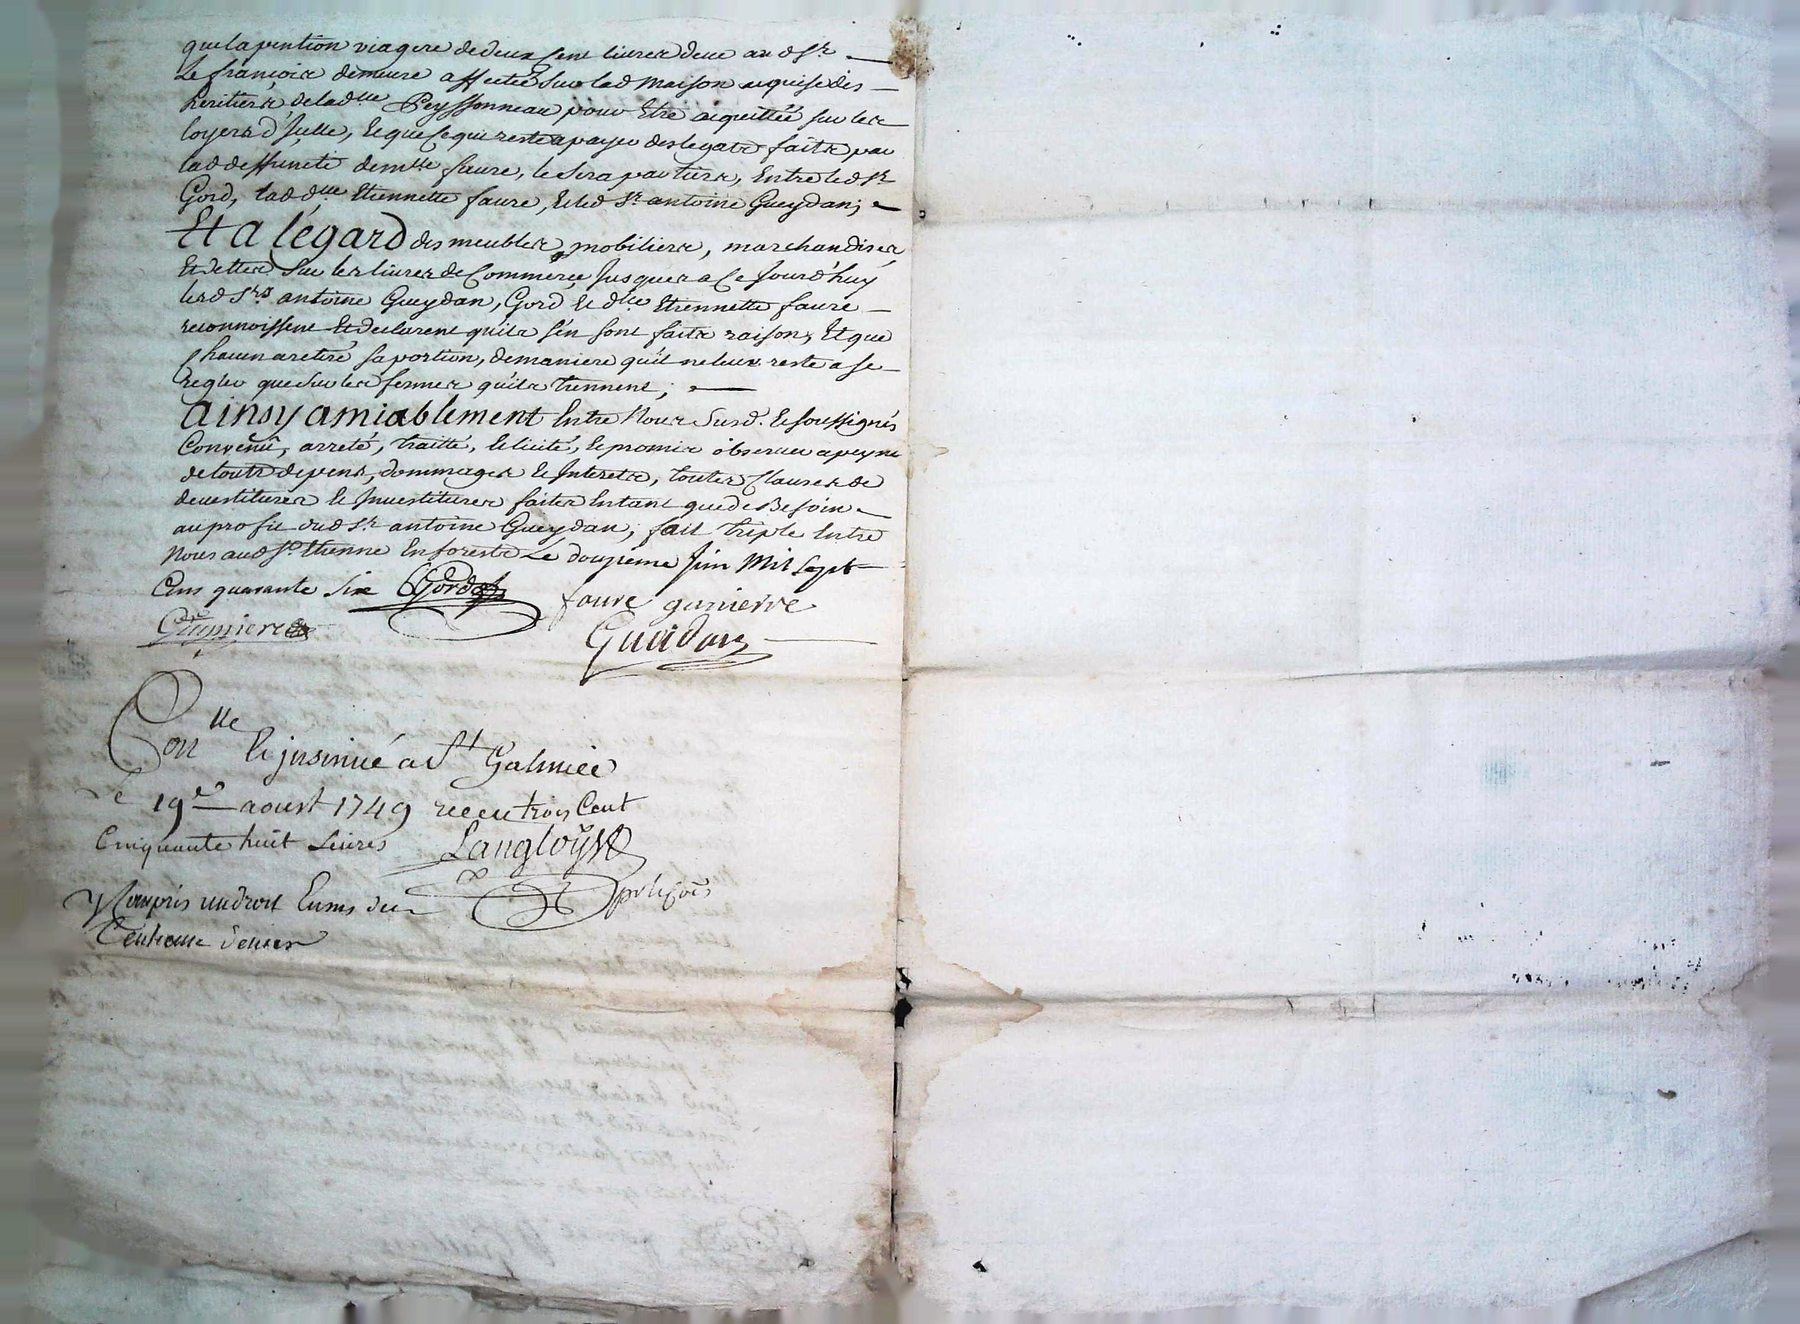 que la pention viagere de deux Cent livres deue au d Sr
Le françois demeure affectée Sur lad Maison acquise des
heritiers de lad lle Peyssonneau pour Etre acquittée sur les
loyers d'Jcelle, Et que Ce qui reste a payer des legats faits par
lad deffuncte demlle faure, le Sera par tiers, Entre led Sr
Gord, lad dlle Etiennette faure, Et led Sr antoine Gueydan;
Et a légard des meubles, mobiliers, marchandises
Et dettes Sur les livres de Commerce, Jusques a Ce Jourd'huy
lesd Srs antoine Gueydan, Gord Et dlle Etiennette faure
reconnoissent Et declarent qu'ils s'en sont faits raison, Et que
Chacun a retiré sa portion, de maniere qu'il ne leur reste a se
regler que Sur les fermes qu'ils tiennent;
Ainsy amiablement Entre Nous Susd. Et soussignés
Convenu, arreté, traitté, Et licité, Et promis observer a peyne
de touts depens, dommages Et Interets, toutes Clauses de
devestitures Et Investitures faites Entant que de Besoin
au profit dud Sr antoine Gueydan; fait triple Entre
Nous aud St Etienne En forests Le douzieme Jun Mil Sept
Cens quarante Six Gord faure gunierre
Gunierre
Gueidan
Conlle Et jnsinué a St Galmier
Le 19e aoust 1749 receu trois Cent
Cinquante huit Livres Langloys
Y Compris un droit En sus du
Centieme denier